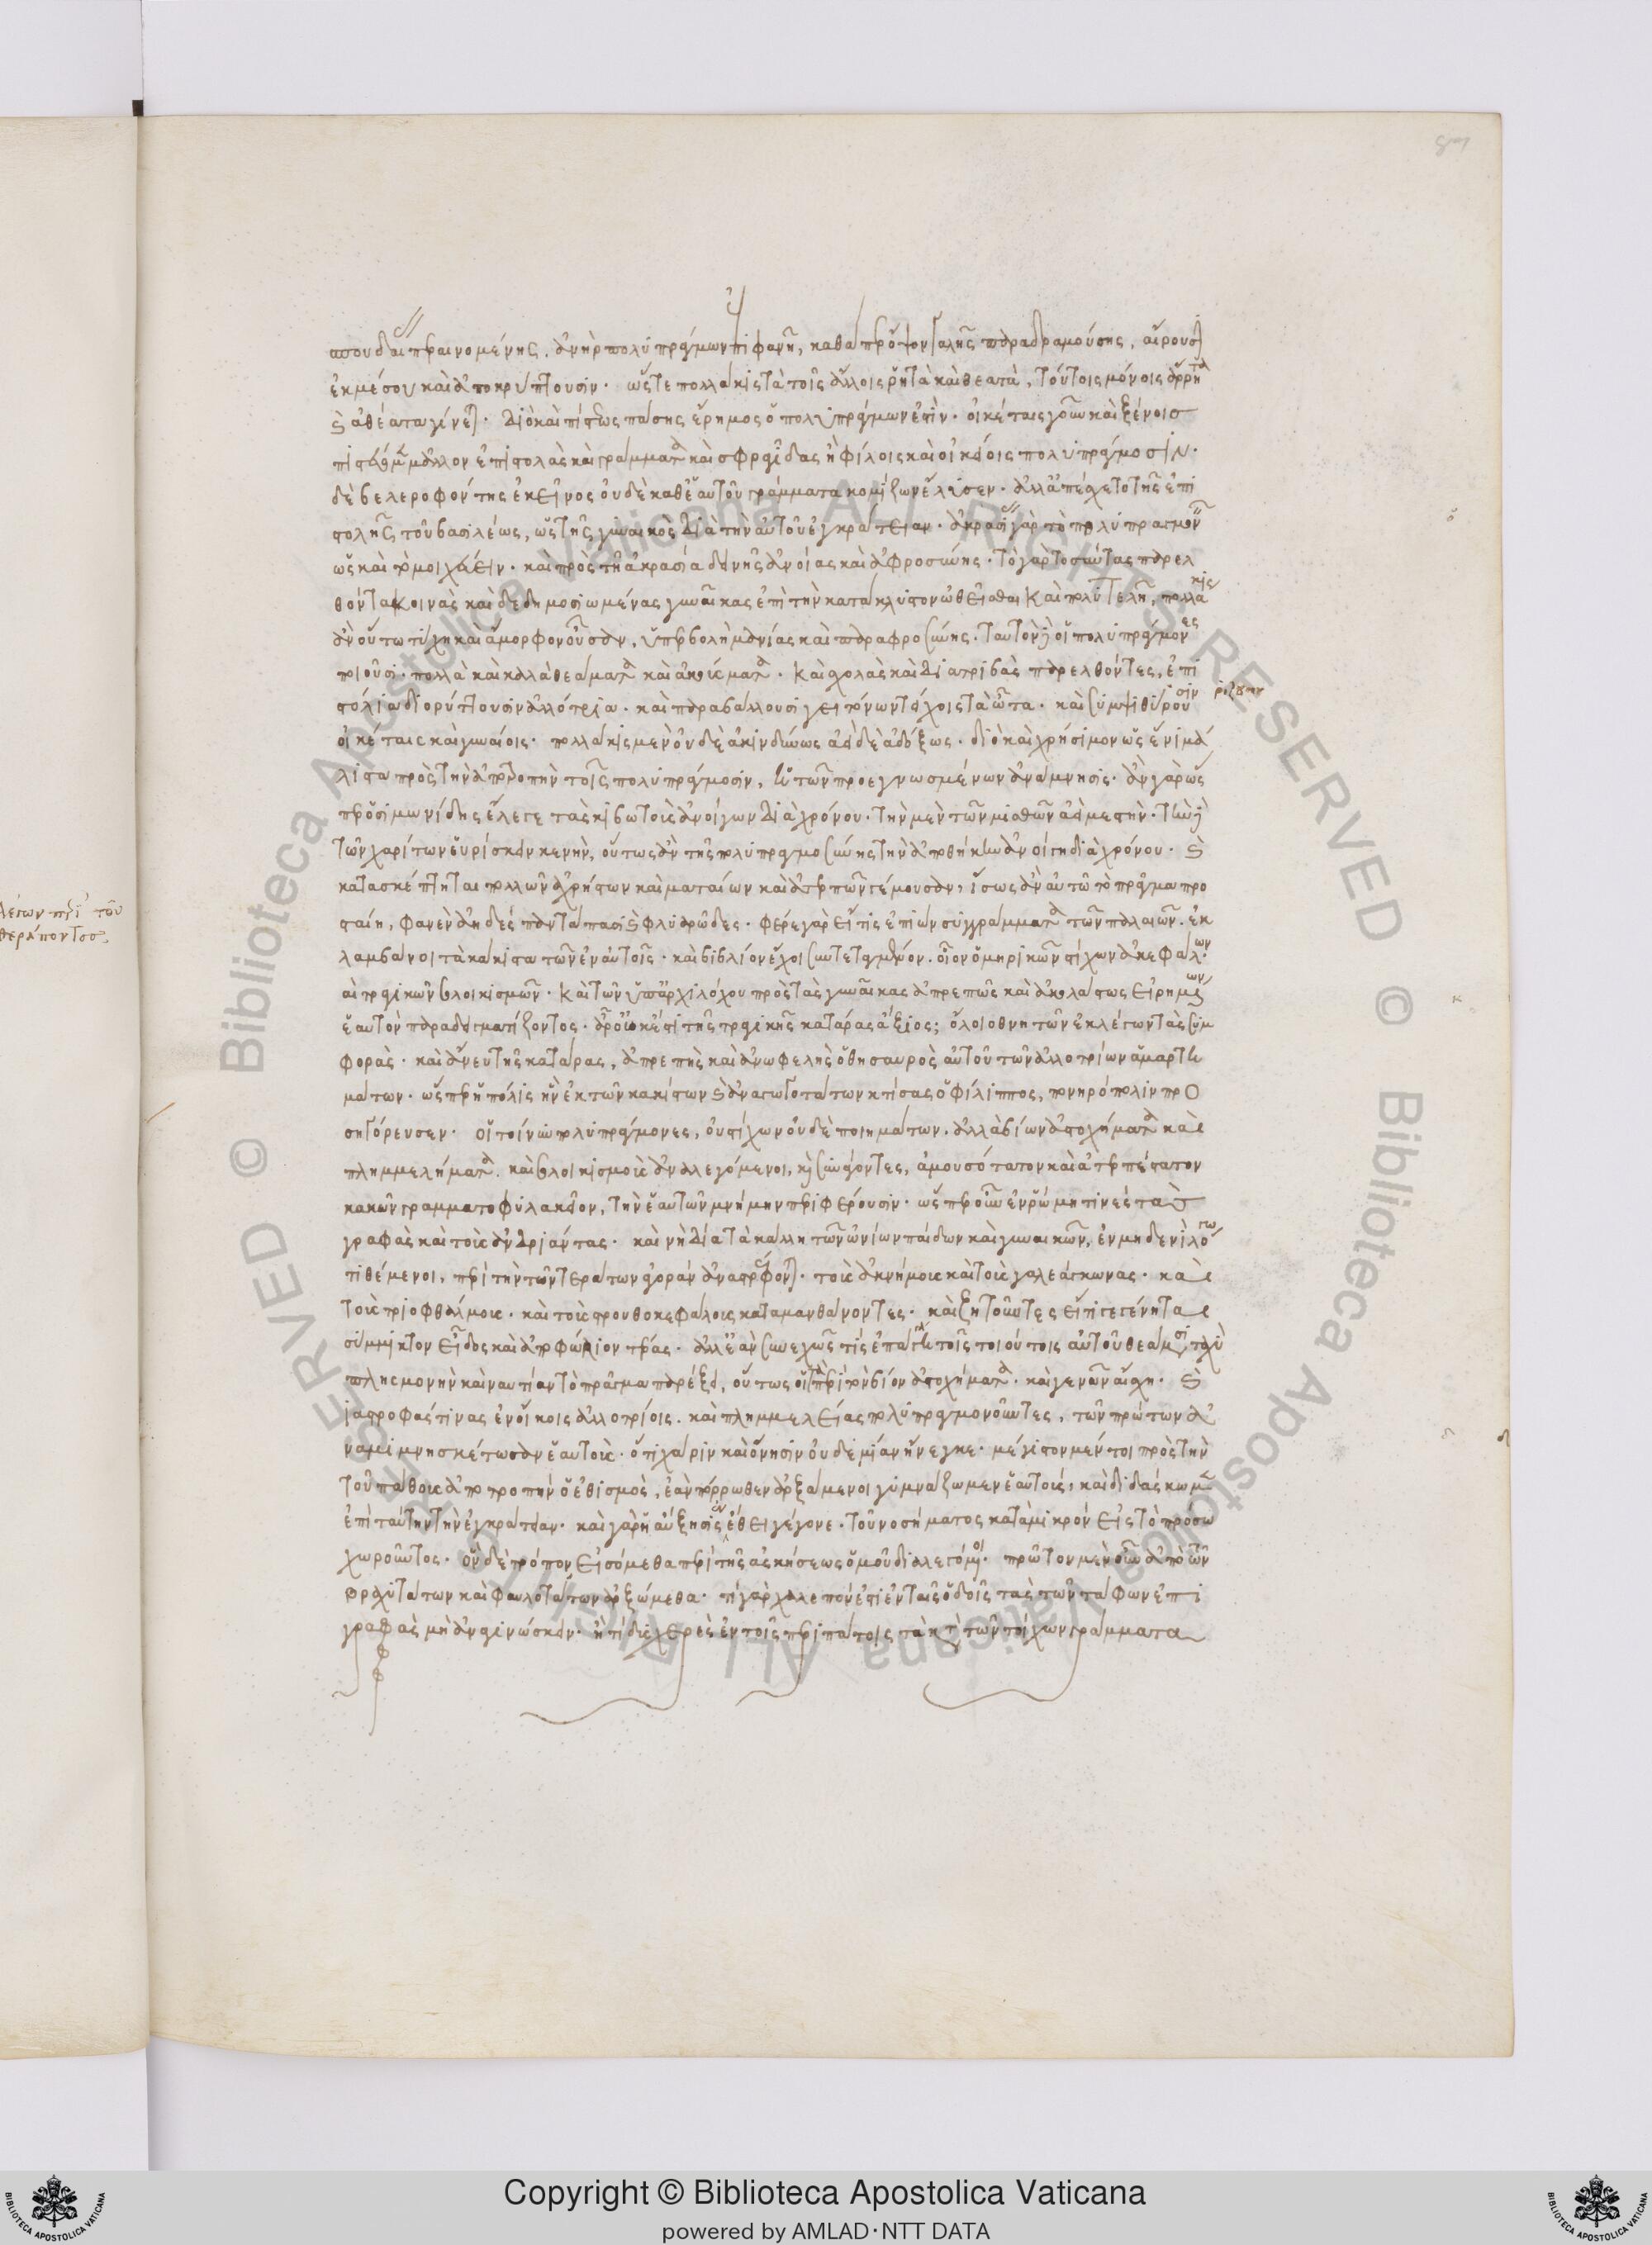 σπουδαὶ περαινομένης, ἀνὴρ πολυπράγμων ἐπιφανῇ, καθάπερ ὄψον γαλῆς παραδραμούσης, αἴρουσιν
ἐκ μέσου καὶ ἀποκρύπτουσιν. ὥστε πολλάκις τὰ τοῖς ἄλλοις ῥητὰ καὶ θεατὰ, τούτοις μόνοις ἄρρητα
καὶ ἀθέατα γίνεται. διὸ καὶ πίστεως πάσης ἔρημος ὁ πολυπράγμων ἐστίν. οἰκέταις γοῦν καὶ ξένοις
πιστεύομεν μᾶλλον ἐπιστολὰς καὶ γράμματα καὶ σφραγῖδας ἢ φίλοις καὶ οἰκείοις πολυπράγμοσιν.
δὲ βελεροφόντης ἐκεῖνος οὐδὲ καθ' ἑαυτοῦ γράμματα κομίζων ἔλυσεν. ἀλλ' ἀπέσχετο τῆς ἐπι
στολῆς τοῦ βασιλέως, ὡς τῆς γυναικὸς διὰ τὴν αὐτοῦ ἐγκράτειαν. ἀκρασία γὰρ τὸ πολυπραγμονεῖν
ὡς καὶ τὸ μοιχεύειν. καὶ πρὸς τῇ ἀκρασίᾳ δεινῆς ἀνοίας καὶ ἀφροσύνης. τὸ γὰρ τοσαύτας παρελ
θόντα κοινὰς καὶ δεδημοσιωμένας γυναῖκας ἐπὶ τὴν κατάκλειστον ὠθεῖσθαι καὶ πολυτελῆ, πολλάκις
ἂν οὕτω τύχῃ καὶ ἄμορφον οὖσαν, ὑπερβολὴ μανίας καὶ παραφροσύνης. ταυτὸν δὲ οἱ πολυπράγμονες
ποιοῦσι. πολλὰ καὶ καλὰ θεάματα καὶ ἀκούσματα. καὶ σχολὰς καὶ διατριβὰς παρελθόντες, ἐπι
στόλια διορύττουσιν ἀλλότρια. καὶ παραβάλλουσι γειτόνων τοίχοις τὰ ὦτα. καὶ συμψιθυρίζουσιν
οἰκέταις καὶ γυναίοις. πολλάκις μὲν οὐδὲ ἀκινδύνως ἀεὶ δὲ ἀδόξως. διὸ καὶ χρήσιμον ὡς ἔνι μά
λιστα πρὸς τὴν ἀποτροπὴν τοῖς πολυπράγμοσιν, ἡ τῶν προεγνωσμένων ἀνάμνησις. ἂν γὰρ ὥς
περ ὁ σιμωνίδης ἔλεγε τὰς κιβωτοὺς ἀνοίγων διὰ χρόνου. τὴν μὲν τῶν μισθῶν ἀεὶ μεστὴν. τὴν δὲ
τῶν χαρίτων εὑρίσκειν κενὴν, οὕτως ἄν τις τῆς πολυπραγμοσύνης τὴν ἀποθήκην ἀνοίγῃ διὰ χρόνου. καὶ
κατασκέπτηται πολλῶν ἀχρήστων καὶ ματαίων καὶ ἀτερπῶν γέμουσαν, ἴσως ἂν αὐτῷ τὸ πρᾶγμα προ
σταίη, φανὲν ἀηδὲς παντάπασι καὶ φλυαρῶδες. φέρε γὰρ εἴ τις ἐπιὼν συγγράμματα τῶν παλαιῶν. ἐκ
λαμβάνοι τὰ κάκιστα τῶν ἐν αὐτοῖς. καὶ βιβλίον ἔχοι συντεταγμένον. οἷον ὁμηρικῶν στίχων ἀκεφάλων.
καὶ τραγικῶν σολοικισμῶν. καὶ τῶν ὑπ' ἀρχιλόχου πρὸς τὰς γυναῖκας ἀπρεπῶς καὶ ἀκολάστως εἰρημένων
ἑαυτὸν παραδειγματίζοντος. ἆρ' οὐκ ἔστι τῆς τραγικῆς κατάρας ἄξιος; ὄλοιο θνητῶν ἐκλέγων τὰς συμ
φοράς. καὶ ἄνευ τῆς κατάρας, ἀπρεπὴς καὶ ἀνωφελὴς ὁ θησαυρὸς αὐτοῦ τῶν ἀλλοτρίων ἁμαρτη
μάτων. ὥσπερ ἡ πόλις ἣν ἐκ τῶν κακίστων καὶ ἀναγωγοτάτων κτίσας ὁ φίλιππος, πονηρόπολιν προ
σηγόρευσεν. οἱ τοίνυν πολυπράγμονες, οὐ στίχων οὐδὲ ποιημάτων. ἀλλὰ βίων ἀστοχήματα καὶ
πλημμελήματα. καὶ σολοικισμοὺς ἀναλεγόμενοι, καὶ συνάγοντες, ἀμουσότατον καὶ ἀτερπέστατον
κακῶν γραμματοφυλακεῖον, τὴν ἑαυτῶν μνήμην περιφέρουσιν. ὥσπερ οὖν ἐν ῥώμῃ τινὲς τὰς
γραφὰς καὶ τοὺς ἀνδριάντας. καὶ νὴ δία τὰ κάλλη τῶν ὠνίων παίδων καὶ γυναικῶν, ἐν μηδενὶ λόγῳ
τιθέμενοι, περὶ τὴν τῶν τεράτων ἀγορὰν ἀναστρέφονται. τοὺς ἀκνήμους καὶ τοὺς γαλεάγκωνας. καὶ
τοὺς τριοφθάλμους. καὶ τοὺς στρουθοκεφάλους καταμανθάνοντες. καὶ ζητοῦντες εἴ τι γεγένηται
σύμμικτον εἶδος καὶ ἀποφώλιον τέρας. ἀλλ' ἐὰν συνεχῶς τις ἐπάγῃ τοῖς τοιούτοις αὐτοῦ θεάμασι, ταχὺ
πλησμονὴν καὶ ναυτίαν τὸ πρᾶγμα παρέξει, οὕτως οἱ τὰ περὶ τὸν βίον ἀστοχήματα. καὶ γενῶν αἴσχη. καὶ
διαστροφάς τινας ἐν οἴκοις ἀλλοτρίοις. καὶ πλημμελείας πολυπραγμονοῦντες, τῶν πρώτων ἀ
ναμιμνησκέτωσαν ἑαυτοὺς. ὅτι χάριν καὶ ὄνησιν οὐδεμίαν ἤνεγκε. μέγιστον μέντοι πρὸς τὴν
τοῦ πάθους ἀποτροπὴν ὁ ἐθισμὸς, ἐὰν πόρρωθεν ἀρξάμενοι γυμνάζωμεν ἑαυτοὺς, καὶ διδάσκωμεν
ἐπὶ ταύτην τὴν ἐγκράτειαν. καὶ γὰρ ἡ αὔξησις ἐν ἔθει γέγονε. τοῦ νοσήματος κατὰ μικρὸν εἰς τὸ πρόσω
χωροῦντος. ὃν δὲ τρόπον εἰσόμεθα περὶ τῆς ἀσκήσεως ὁμοῦ διαλεγόμενοι. πρῶτον μὲν οὖν ἀπὸ τῶν
βραχυτάτων καὶ φαυλοτάτων ἀρξώμεθα. τί γὰρ χαλεπόν ἐστιν ἐν ταῖς ὁδοῖς τὰς τῶν τάφων ἐπι
γραφὰς μὴ ἀναγινώσκειν. ἢ τί δυσχερὲς ἐν τοῖς περιπάτοις τὰ κατὰ τῶν τοίχων γράμματα
λέγων περὶ τοῦ
θεράποντος
Copyright © Biblioteca Apostolica Vaticana
powered by AMLAD·NTT DATA